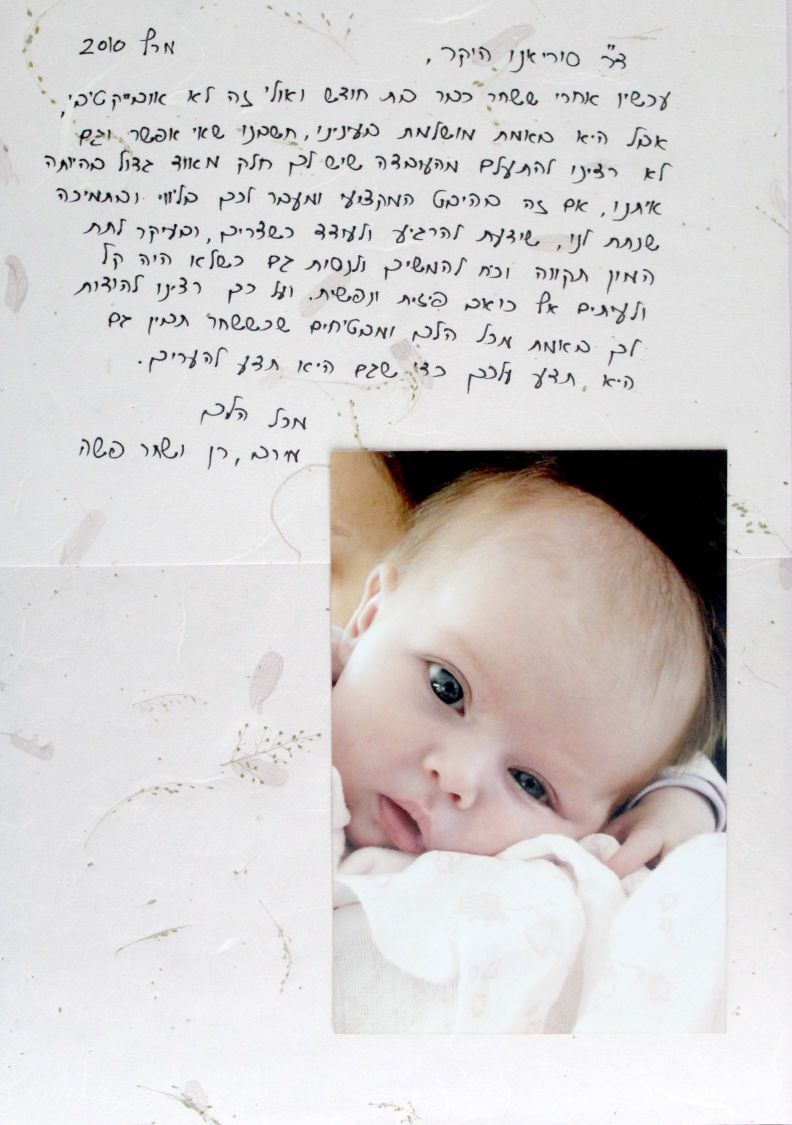 מרץ 2010
ד"ר סוריאנו היקר,
עכשיו אחרי ששחר כבר בת חודש ואולי זה לא אובייקטיבי,
אבל היא באמת מושלמת בעינינו, חשבנו שאי אפשר וגם
לא רצינו להתעלם מהעובדה שיש לך חלק מאוד גדול בהיותה
איתנו, אם זה בהיבט המקצועי ומעבר לכך בליווי ובתמיכה
שנתת לנו, שידעת להרגיע ולעודד כשצריך, ובעיקר לתת
המון תקווה וכח להמשיך ולנסות גם כשלא היה קל
ולעיתים אף כואב פיזית ונפשית. ועל כך רצינו להודות
לך באמת מכל הלב ומבטיחים שכששחר תבין גם
היא תדע עליך כדי שגם היא תדע להעריך.
מכל הלב
מירב, רן ושחר פשה